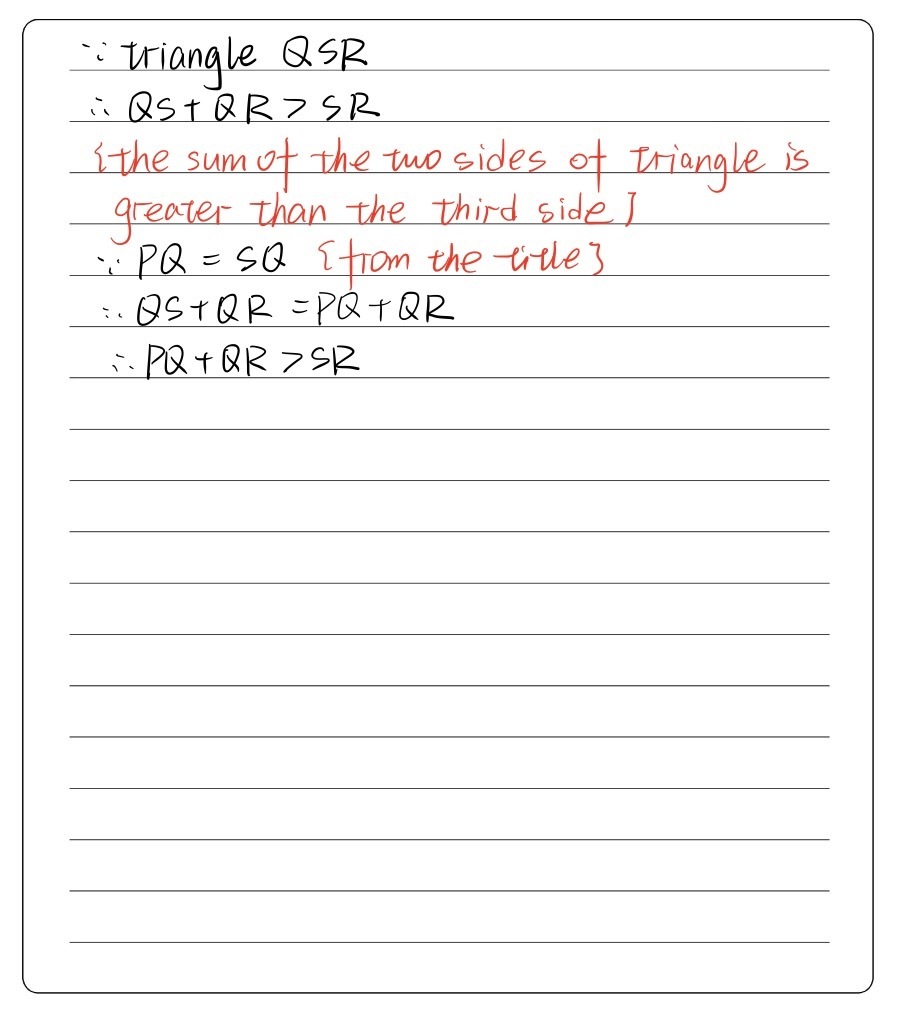 ∵ triangle QSR
∴ QS + QR > SR
{the sum of the two sides of triangle is
greater than the third side}
∵ PQ = SQ {from the title}
∴ QS + QR = PQ + QR
∴ PQ + QR > SR